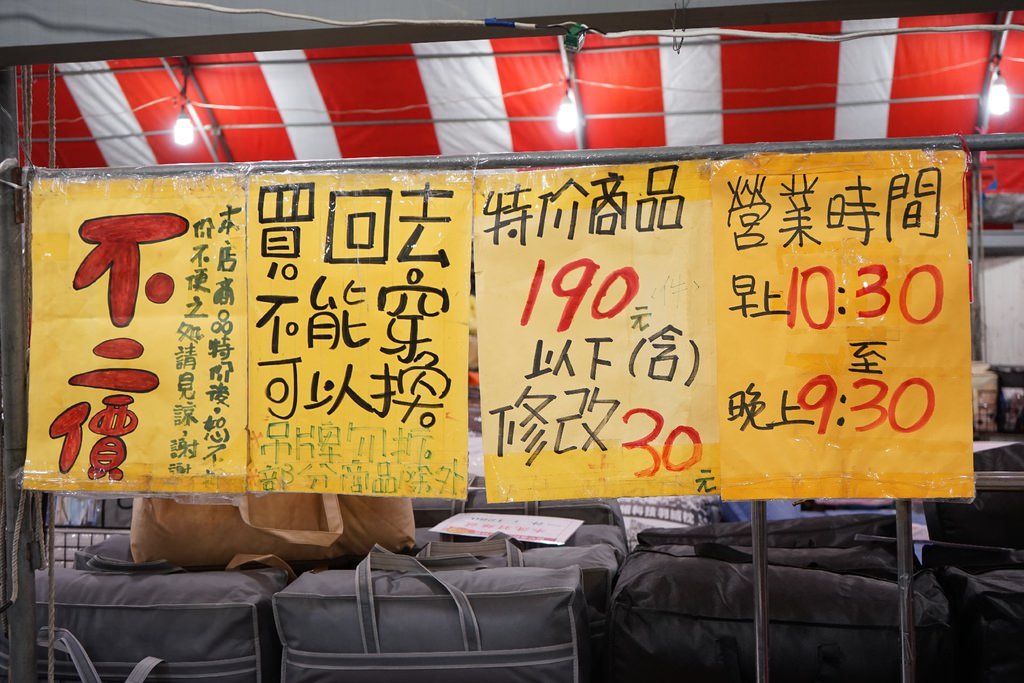 不二價
本店商品特价後.恕不
价不便之処請見諒.謝謝
買回去
不能穿
可以換。
吊牌勿拆.
部分商品除外
特价商品
190元(件)
以下(含)
修改30元
營業時間
早上10:30
至
晚上9:30